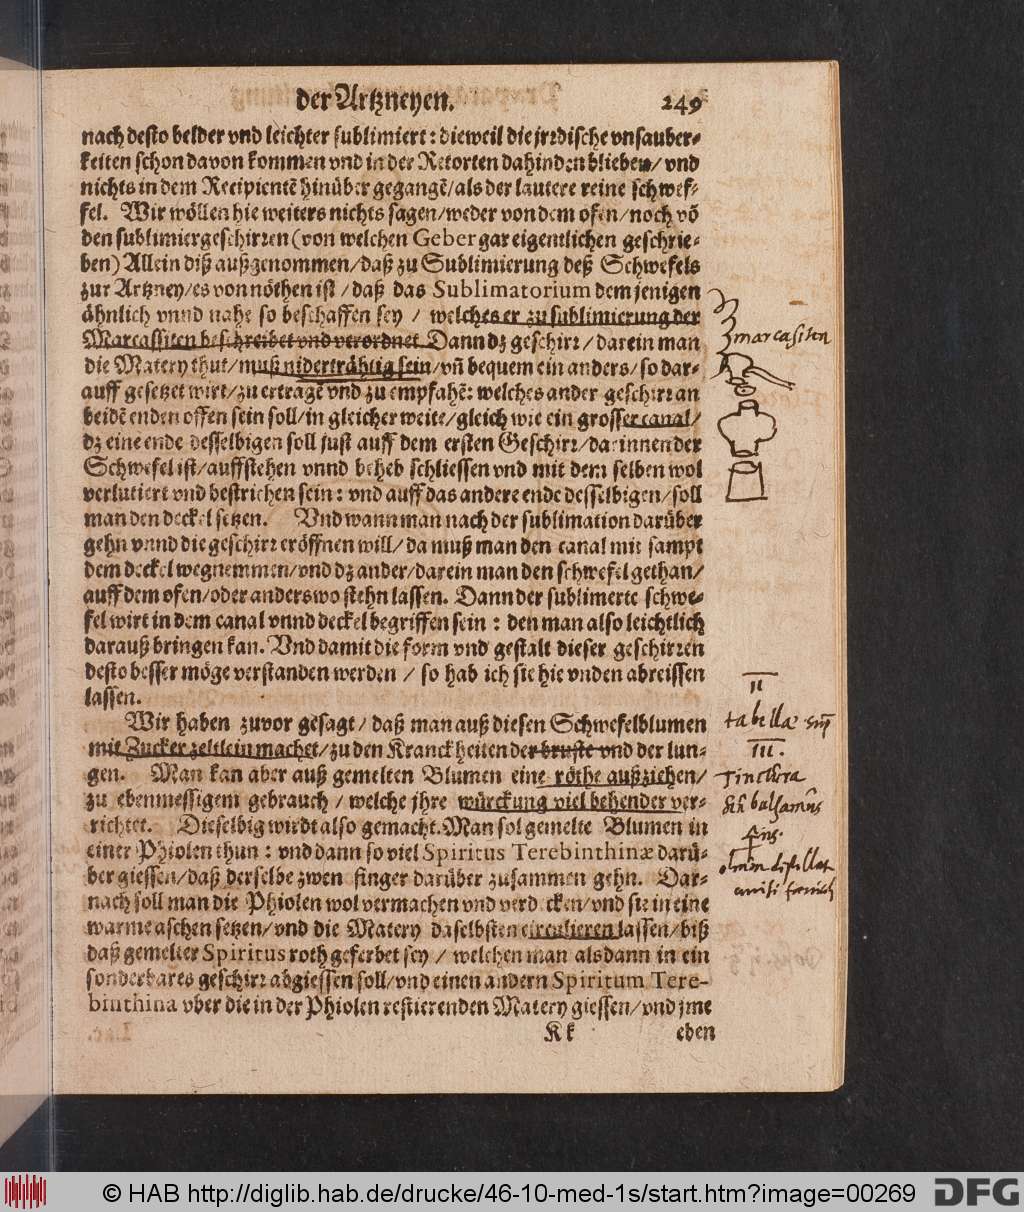 der Artzneyen. 249
nach desto belder vnd leichter sublimiert: dieweil die jrꝛdische vnsauber-
keiten schon davon kommen vnd in der Retorten dahinden blieben/ vnd
nichts in dem Recipientẽ hinüber gegangẽ/ als der lautere reine schwef-
fel. Wir wöllen hie weiters nichts sagen/ weder von dem ofen/ noch võ
den sublimiergeschirꝛen (von welchen Geber gar eigentlichen geschrie-
ben) Allein diß außgenommen/ daß zu Sublimierung deß Schwefels
zur Artzney/ es von nöthen ist/ daß das Sublimatorium dem jenigen
ähnlich vnnd nahe so beschaffen sey / welches er zu sublimierung der
Marcassiten beschreibet vnd verordnet. Dann dz geschirꝛ/ darein man
die Matery thut/ muß niderträhtig sein/ vñ bequem ein anders/ so dar-
auff gesetzet wirt/ zu ertragẽ vnd zu empfahẽ: welches ander geschirꝛ an
beidẽ enden offen sein soll/ in gleicher weite/ gleich wie ein grosser canal/
dz eine ende desselbigen soll just auff dem ersten Geschirꝛ/ darinnen der
Schwefel ist/ auffstehen vnnd beheb schliessen vnd mit dem selben wol
verlutiert vnd bestrichen sein: vnd auff das andere ende desselbigen/ soll
man den deckel setzen. Vnd wann man nach der sublimation darüber
gehn vnnd die geschirꝛ eröffnen will/ da muß man den canal mit sampt
dem deckel wegnemmen/ vnd dz ander/ darein man den schwefel gethan/
auff dem ofen/ oder anderswo stehn lassen. Dann der sublimerte schwe-
fel wirt in dem canal vnnd deckel begriffen sein : den man also leichtlich
darauß bringen kan. Vnd damit die form vnd gestalt dieser geschirꝛen
desto besser möge verstanden werden / so hab ich sie hie vnden abreissen
lassen.
Wir haben zuvor gesagt/ daß man auß diesen Schwefelblumen
mit Zucker zeltlein machet/ zu den Kranckheiten der bruste vnd der lun-
gen. Man kan aber auß gemelten Blumen eine röthe außziehen/
zu ebenmessigem gebrauch / welche jhre würckung viel behender ver-
richtet. Dieselbig wirdt also gemacht. Man sol gemelte Blumen in
einer Phiolen thun: vnd dann so viel Spiritus Terebinthinæ darü-
ber giessen/ daß derselbe zwen finger darüber zusammen gehn. Dar-
nach soll man die Phiolen wol vermachen vnd verdecken/ vnd sie in eine
warme aschen setzen/ vnd die Matery daselbsten circulieren lassen/ biß
daß gemelter Spiritus roth geferbet sey / welchen man alsdann in ein
sonderbares geschirꝛ abgiessen soll/ vnd einen andern Spiritum Tere-
binthina vber die in der Phiolen restierenden Matery giessen/ vnd jme
Kk eben
marcasiten
II
tabellæ
III.
Tinctura
balsamus
© HAB http://diglib.hab.de/drucke/46-10-med-1s/start.htm?image=00269 DFG